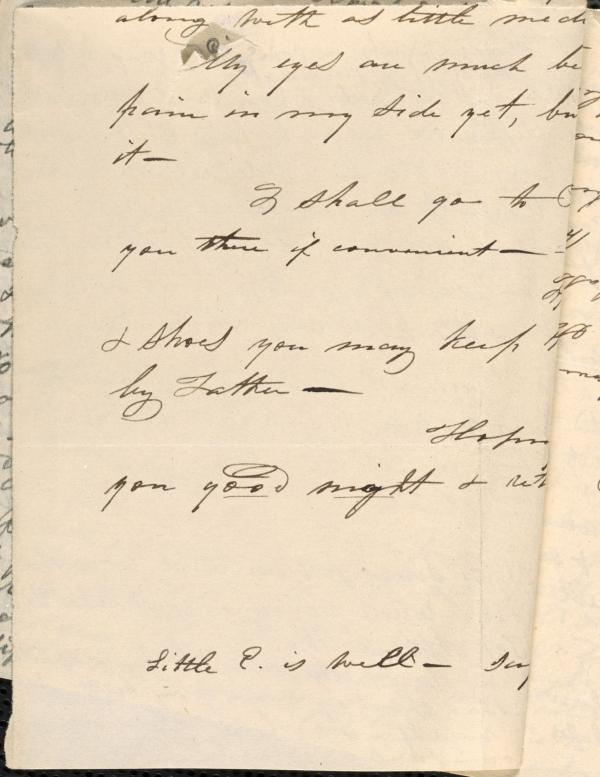 along with as little med
My eyes are much be
pain in my side yet, bu
it—
I shall go to
you there if convenient—
& shoes you may keep
by Father—
Hopin
you good night & ret
Little E. is well— say